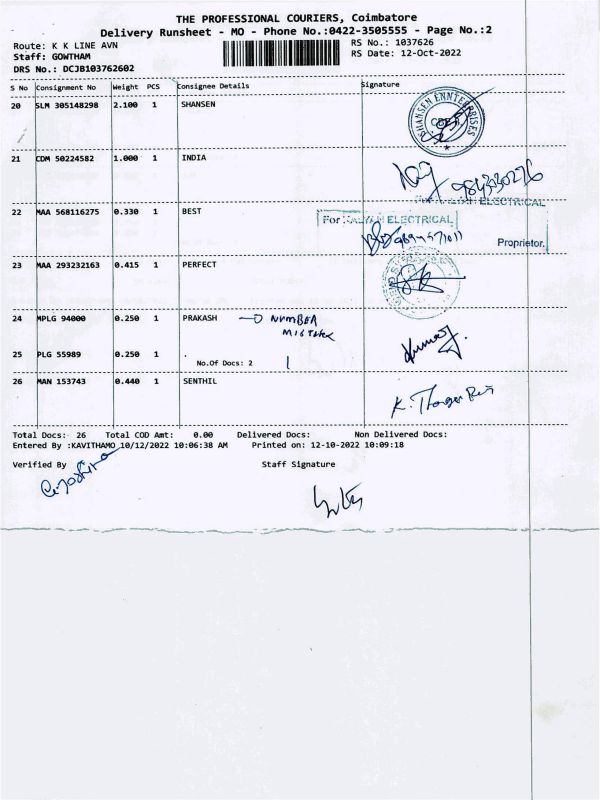 THE PROFESSIONAL COURIERS, Coimbatore
Delivery Runsheet - MO - Phone No.:0422-3505555 - Page No.:2
Route: K K LINE AVN
RS No.: 1037626
Staff: GOWTHAM
RS Date: 12-Oct-2022
DRS No.: DCJB103762602
S No Consignment No Weight PCS Consignee Details Signature
20 SLM 305148298 2.100 1 SHANSEN
SHANSEN ENNTERPRISES
CBE
21 CDM 50224582 1.000 1 INDIA
9843030276
ELECTRICAL
22 MAA 568116275 0.330 1 BEST
For KALYANI ELECTRICAL
Proprietor.
23 MAA 293232163 0.415 1 PERFECT
24 MPLG 94000 0.250 1 PRAKASH NUMBER
MISTAKE
25 PLG 55989 0.250 1 .
No.Of Docs: 2
26 MAN 153743 0.440 1 SENTHIL
Total Docs: 26 Total COD Amt: 0.00 Delivered Docs: Non Delivered Docs:
Entered By :KAVITHAMO 10/12/2022 10:06:38 AM Printed on: 12-10-2022 10:09:18
Verified By Staff Signature